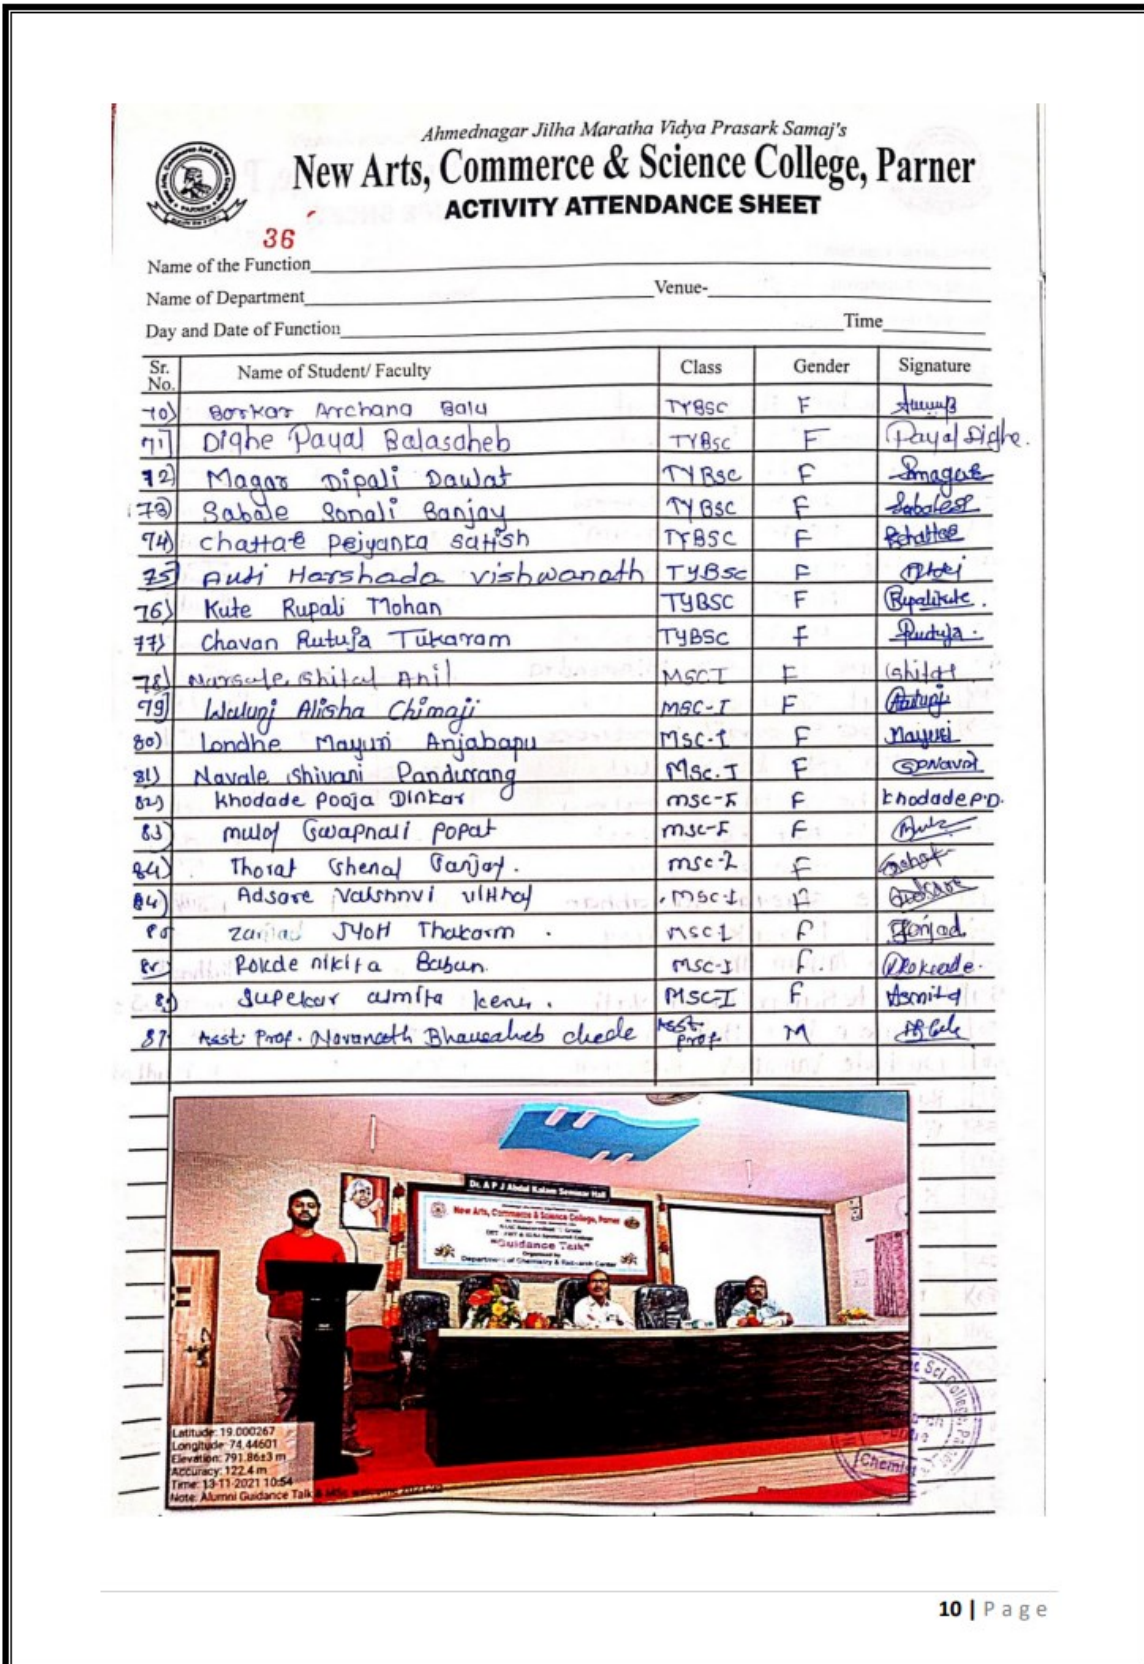 Ahmednagar Jilha Maratha Vidya Prasark Samaj's
New Arts, Commerce & Science College, Parner
ACTIVITY ATTENDANCE SHEET
36
Name of the Function
Name of Department Venue-
Day and Date of Function Time
Sr. No. Name of Student/ Faculty Class Gender Signature
70) Borkar Archana Balu TYBSC F
71) Dighe Payal Balasaheb TYBSC F Payal Dighe.
72) Magar Dipali Dawlat TYBSC F
73) Sabale Sonali Sanjay TYBSC F
74) Chattar Priyanka Satish TYBSC F
75) Auti Harshada Vishwanath TYBSC F
76) Kute Rupali Mohan TYBSC F Rupalikute.
77) Chavan Rutuja Tukaram TYBSC F Rutuja.
78) Narsale Shital Anil MSCI F Shital
79) Walunj Alisha Chimaji MSC-I F
80) Londhe Mayuri Anjabapu MSC-I F Mayuri
81) Navale Shivani Pandurang MSc.I F
82) Khodade Pooja Dinkar MSC-I F Khodade P.D.
83) Popat MSC-I F
84) Thorat Sanjay. MSC-I F
84) Adsare MSC-I
Zanjad Jyoti . MSC-I F Zanjad
Rokde Nikita Baban. MSC-I F. Rokade.
Supekar MSC-I F Asmita
87 Asst. Prof. Bhausaheb Asst. Prof. M
Dr. A P J Abdul Kalam Seminar Hall
New Arts, Commerce & Science College, Parner
"Guidance Talk"
Organized by
Department of Chemistry & Research Center
Latitude: 19.000267
Longitude: 74.44601
Elevation: 791.86±3 m
Accuracy: 122.4 m
Time: 13-11-2021 10:54
Note: Alumni Guidance Talk
10 | Page